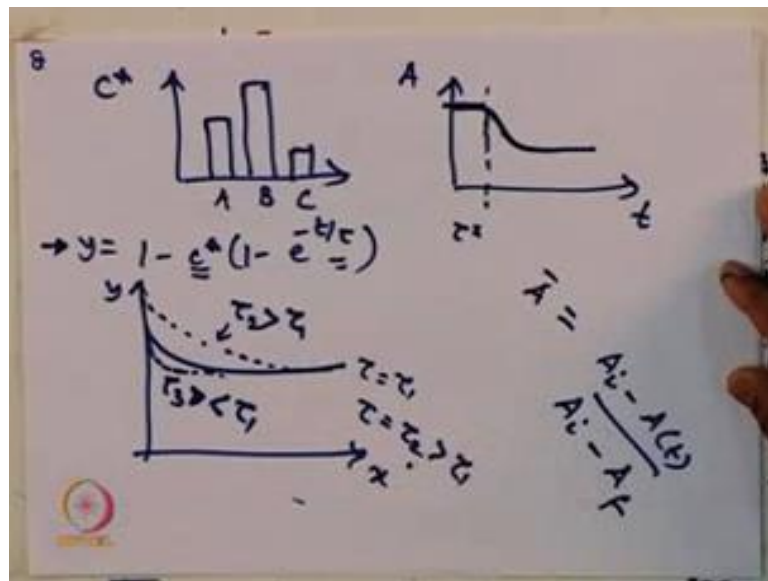 8
C*
A B C
A
t
τ*
→ y = 1 - c* (1 - e^-t/τ)
y
τ2 > τ1
τ = τ1
τ3 > < τ1
τ = τ2 > τ1
x
Ā = Ai - A(t) / Ai - Af